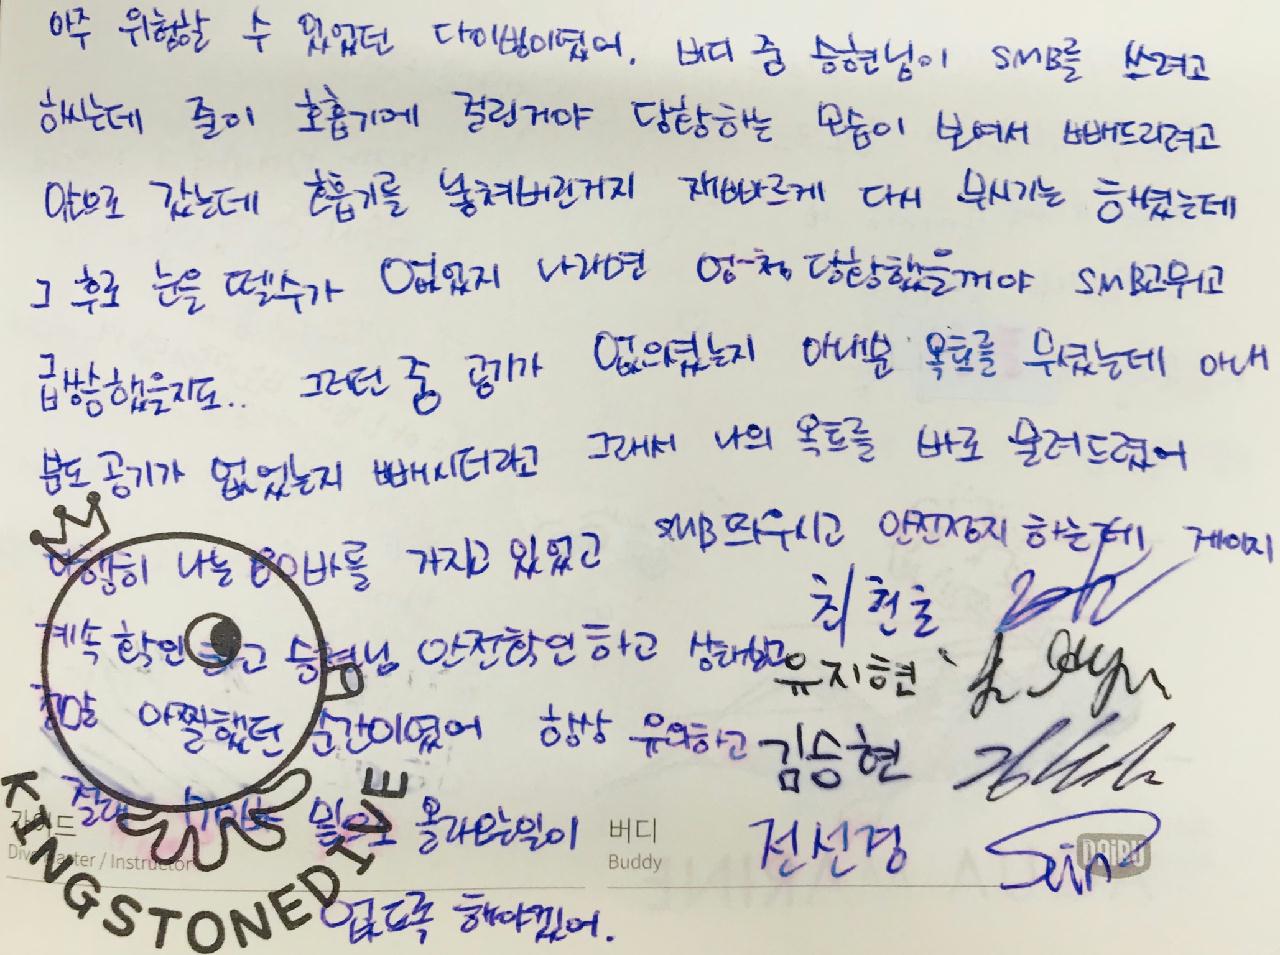 아주 위험할 수 있었던 다이빙이였어. 버디 중 승현님이 SMB를 쓰려고
하시는데 줄이 호흡기에 걸린거야 당황하는 모습이 보여서 빼드리려고
앞으로 갔는데 호흡기를 놓쳐버린거지 재빠르게 다시 무시기는 하셨는데
그 후로 눈을 뗄수가 없었지 나라면 엄청 당황했을꺼야 SMB고뭐고
급상승했을지도.. 그러던 중 공기가 없으셨는지 아내분 옥토를 무셨는데 아내
분도 공기가 없었는지 빼시더라고 그래서 나의 옥토를 바로 물려드렸어
다행히 나는 80바를 가지고 있었고 SMB띄우시고 안전정지 하는데 게이지
계속 확인하고 승현님 안전확인하고 상태보고
정말 아찔했던 순간이였어 항상 유의하고
절대 밑으로 올라오는일이
없도록 해야겠어.
최현호
유지현
김승현
전선경
가이드
Dive Master / Instructor
버디
Buddy
DAIBU
KINGSTONEDIVE